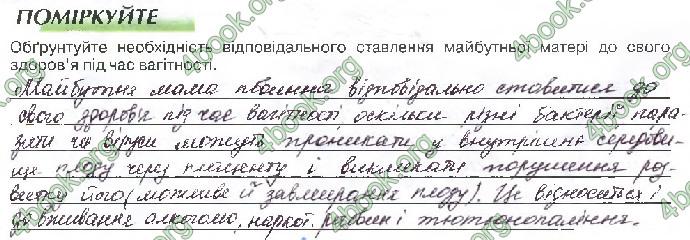 ПОМІРКУЙТЕ
Обґрунтуйте необхідність відповідального ставлення майбутньої матері до свого
здоров'я під час вагітності.
Майбутня мама повинна відповідально ставитися до
свого здоров'я під час вагітності оскільки різні бактерії пара-
зити чи віруси можуть проникати у внутрішнє середови-
ще плоду через плаценту і викликати порушення роз-
витку його (можливе й завмирання плоду). Це відноситься і
до вживання алкоголю, наркот. речовин і тютюнопаління.
4book.org